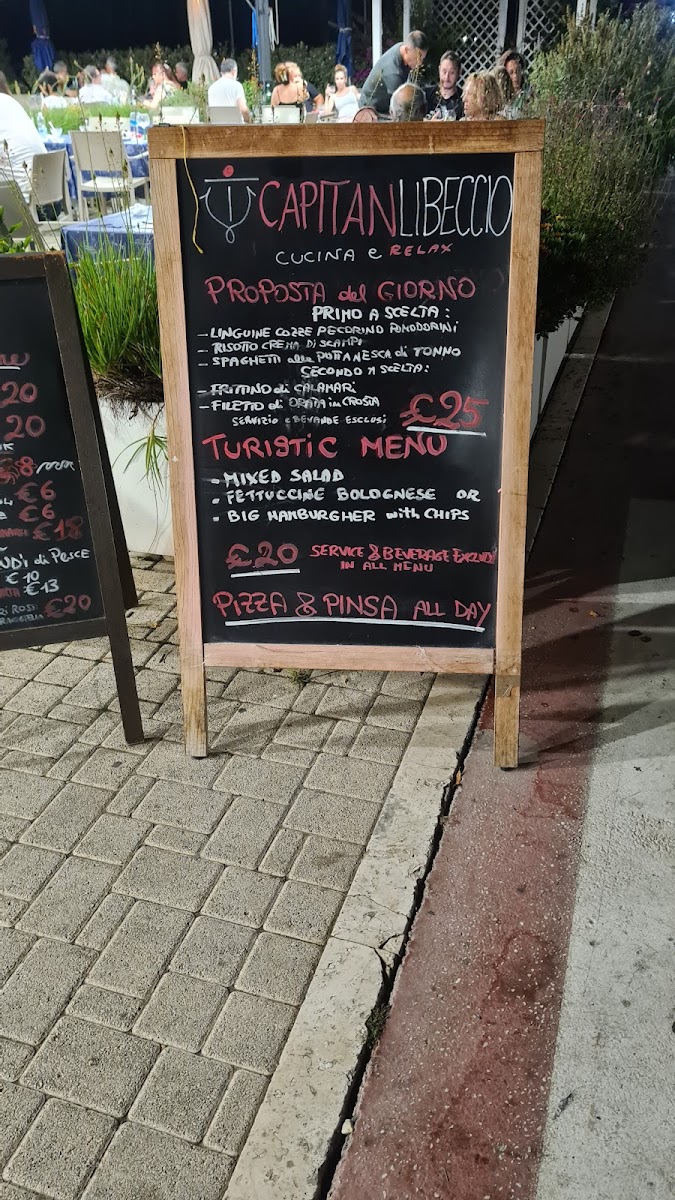 CAPITAN LIBECCIO
CUCINA e RELAX
PROPOSTA del GIORNO
PRIMO A SCELTA:
- LINGUINE COZZE PECORINO POMODORINI
- RISOTTO CREMA DI SCAMPI
- SPAGHETTI alla PUTTANESCA di TONNO
SECONDO A SCELTA:
- FRITTINO di CALAMARI
- FILETTO di ORATA in CROSTA
SERVIZIO e BEVANDE ESCLUSI
€25
TURISTIC MENU
- MIXED SALAD
- FETTUCCINE BOLOGNESE OR
- BIG HAMBURGHER with CHIPS
€20 SERVICE & BEVERAGE EXCLUDI
IN ALL MENU
PIZZA & PINSA ALL DAY
20
20
8
€6
€6
€18
di PESCE
€10
€13
€20